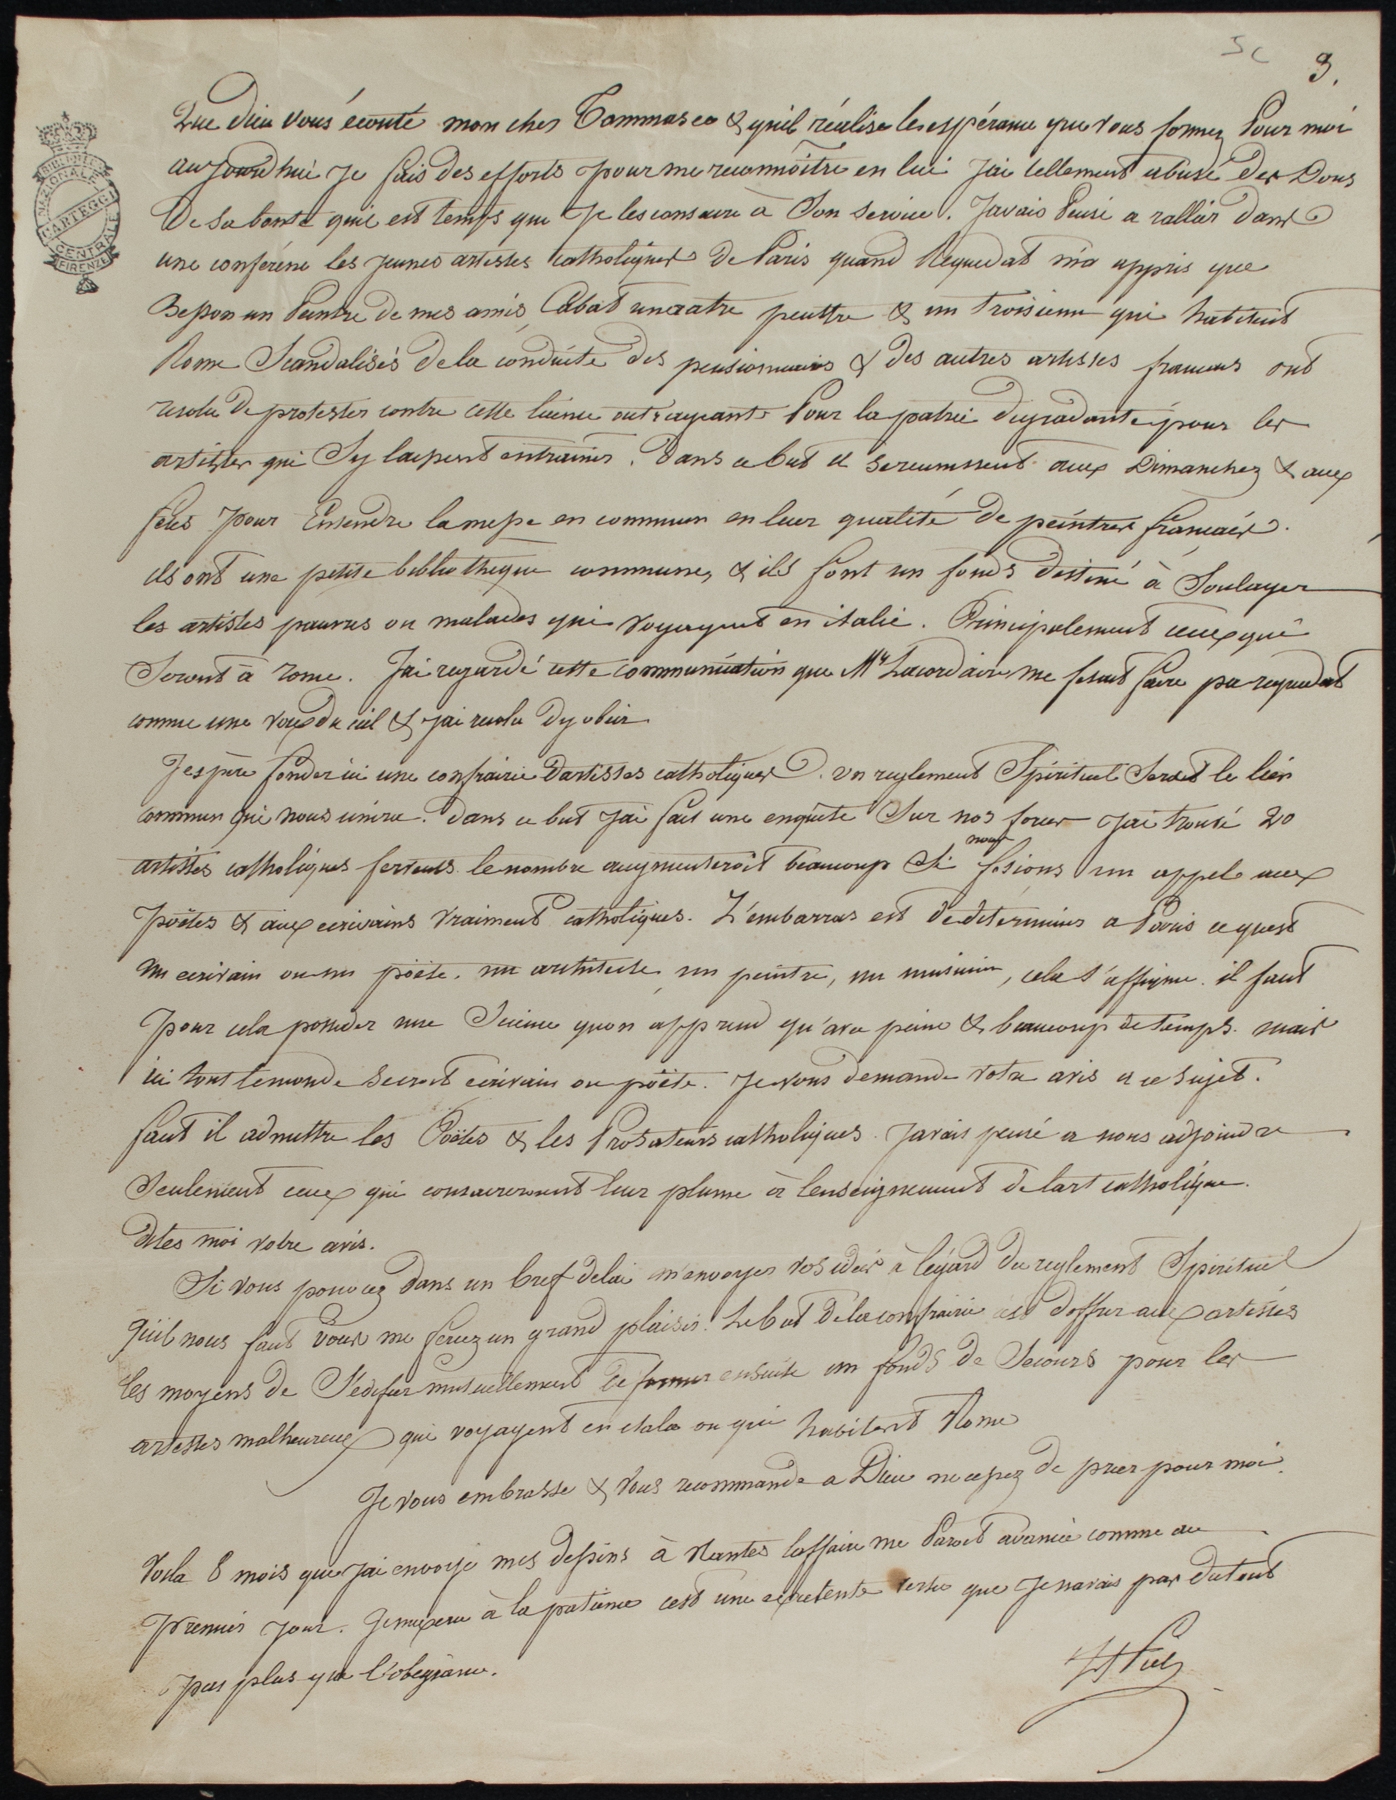 5c
3.
BIBLIOTECA NAZIONALE CENTRALE FIRENZE
CARTEGGI
Que dieu vous écoute mon cher Tommaseo & qu'il réalise les espérance que vous formez Pour moi
aujourd'hui je fais des efforts pour me reconnoitre en lui J'ai tellement abusé des Dons
De sa bonté quil est temps que Je les consacre à Son Service. Javais Pensé a rallier dans
une conférence les jeunes artistes catholiques De Paris quand Requedat m'a appris que
Besson un Peintre de mes amis Cabat un autre peintre & un troisieme qui habitent
Rome Scandalisés de la conduite des pensionnaires & des autres artistes francais ont
resolu De protester contre cette licence outrageante Pour la patrie degradante pour les
artistes qui Sy laissent entrainer. Dans ce but il se reunissent aux Dimanches & aux
fetes pour Entendre la messe en commun en leur qualité de peintres francais.
ils ont une petite bibliotheque commune, & ils font un fonds destiné à Soulager
les artistes pauvres ou malades qui voyagent en italie. Principalement ceux qui
Seront à rome. J'ai regardé cette communication que Mr Lacordaire me fesait faire par requedat
comme une voix du ciel & j'ai resolu Dy obeir
Jespère fonder ici une confrairie Dartistes catholiques. un reglement Spirituel Serait le lien
commun qui nous unira. Dans ce but J'ai fait une enquête Sur nos forces J'ai trouvé 20
artistes catholiques fervents le nombre augmenteroit beaucoup Si nous fesions un appel aux
Poëtes & aux ecrivains vraiment catholiques. L'embarras est de determiner a Paris ce quest
un ecrivain ou un poëte. un architecte, un peintre, un musicien, cela s'affirme. il faut
pour cela posseder une Science quon apprend qu'avec peine & beaucoup de temps. mais
ici tout le monde se croit ecrivain ou poëte. Je vous demande votre avis a ce sujet.
faut il admettre les Poëtes & les Prosateurs catholiques. Javais pensé a nous adjoindre
Seulement ceux qui consacreroient leur plume à lenseignement de lart catholique.
dites moi votre avis.
Si vous pouvez Dans un bref delai m'envoyer vos idées à légard du reglement Spirituel
quil nous faut Vous me ferez un grand plaisir. Le but de la confrairie est doffrir aux artistes
les moyens de Sedifier mutuellement de former ensuite un fonds de Secours pour les
artistes malheureux qui voyagent en italie ou qui habitent Rome
Je vous embrasse & vous recommande a Dieu ne cessez de prier pour moi.
Voila 8 mois que jai envoyé mes dessins à Nantes laffaire me Paroit avancée comme au
premier jour. Je mexerce à la patience cest une excelente vertu que Je navais pas Du tout
pas plus que l'obeissance.
H Piel